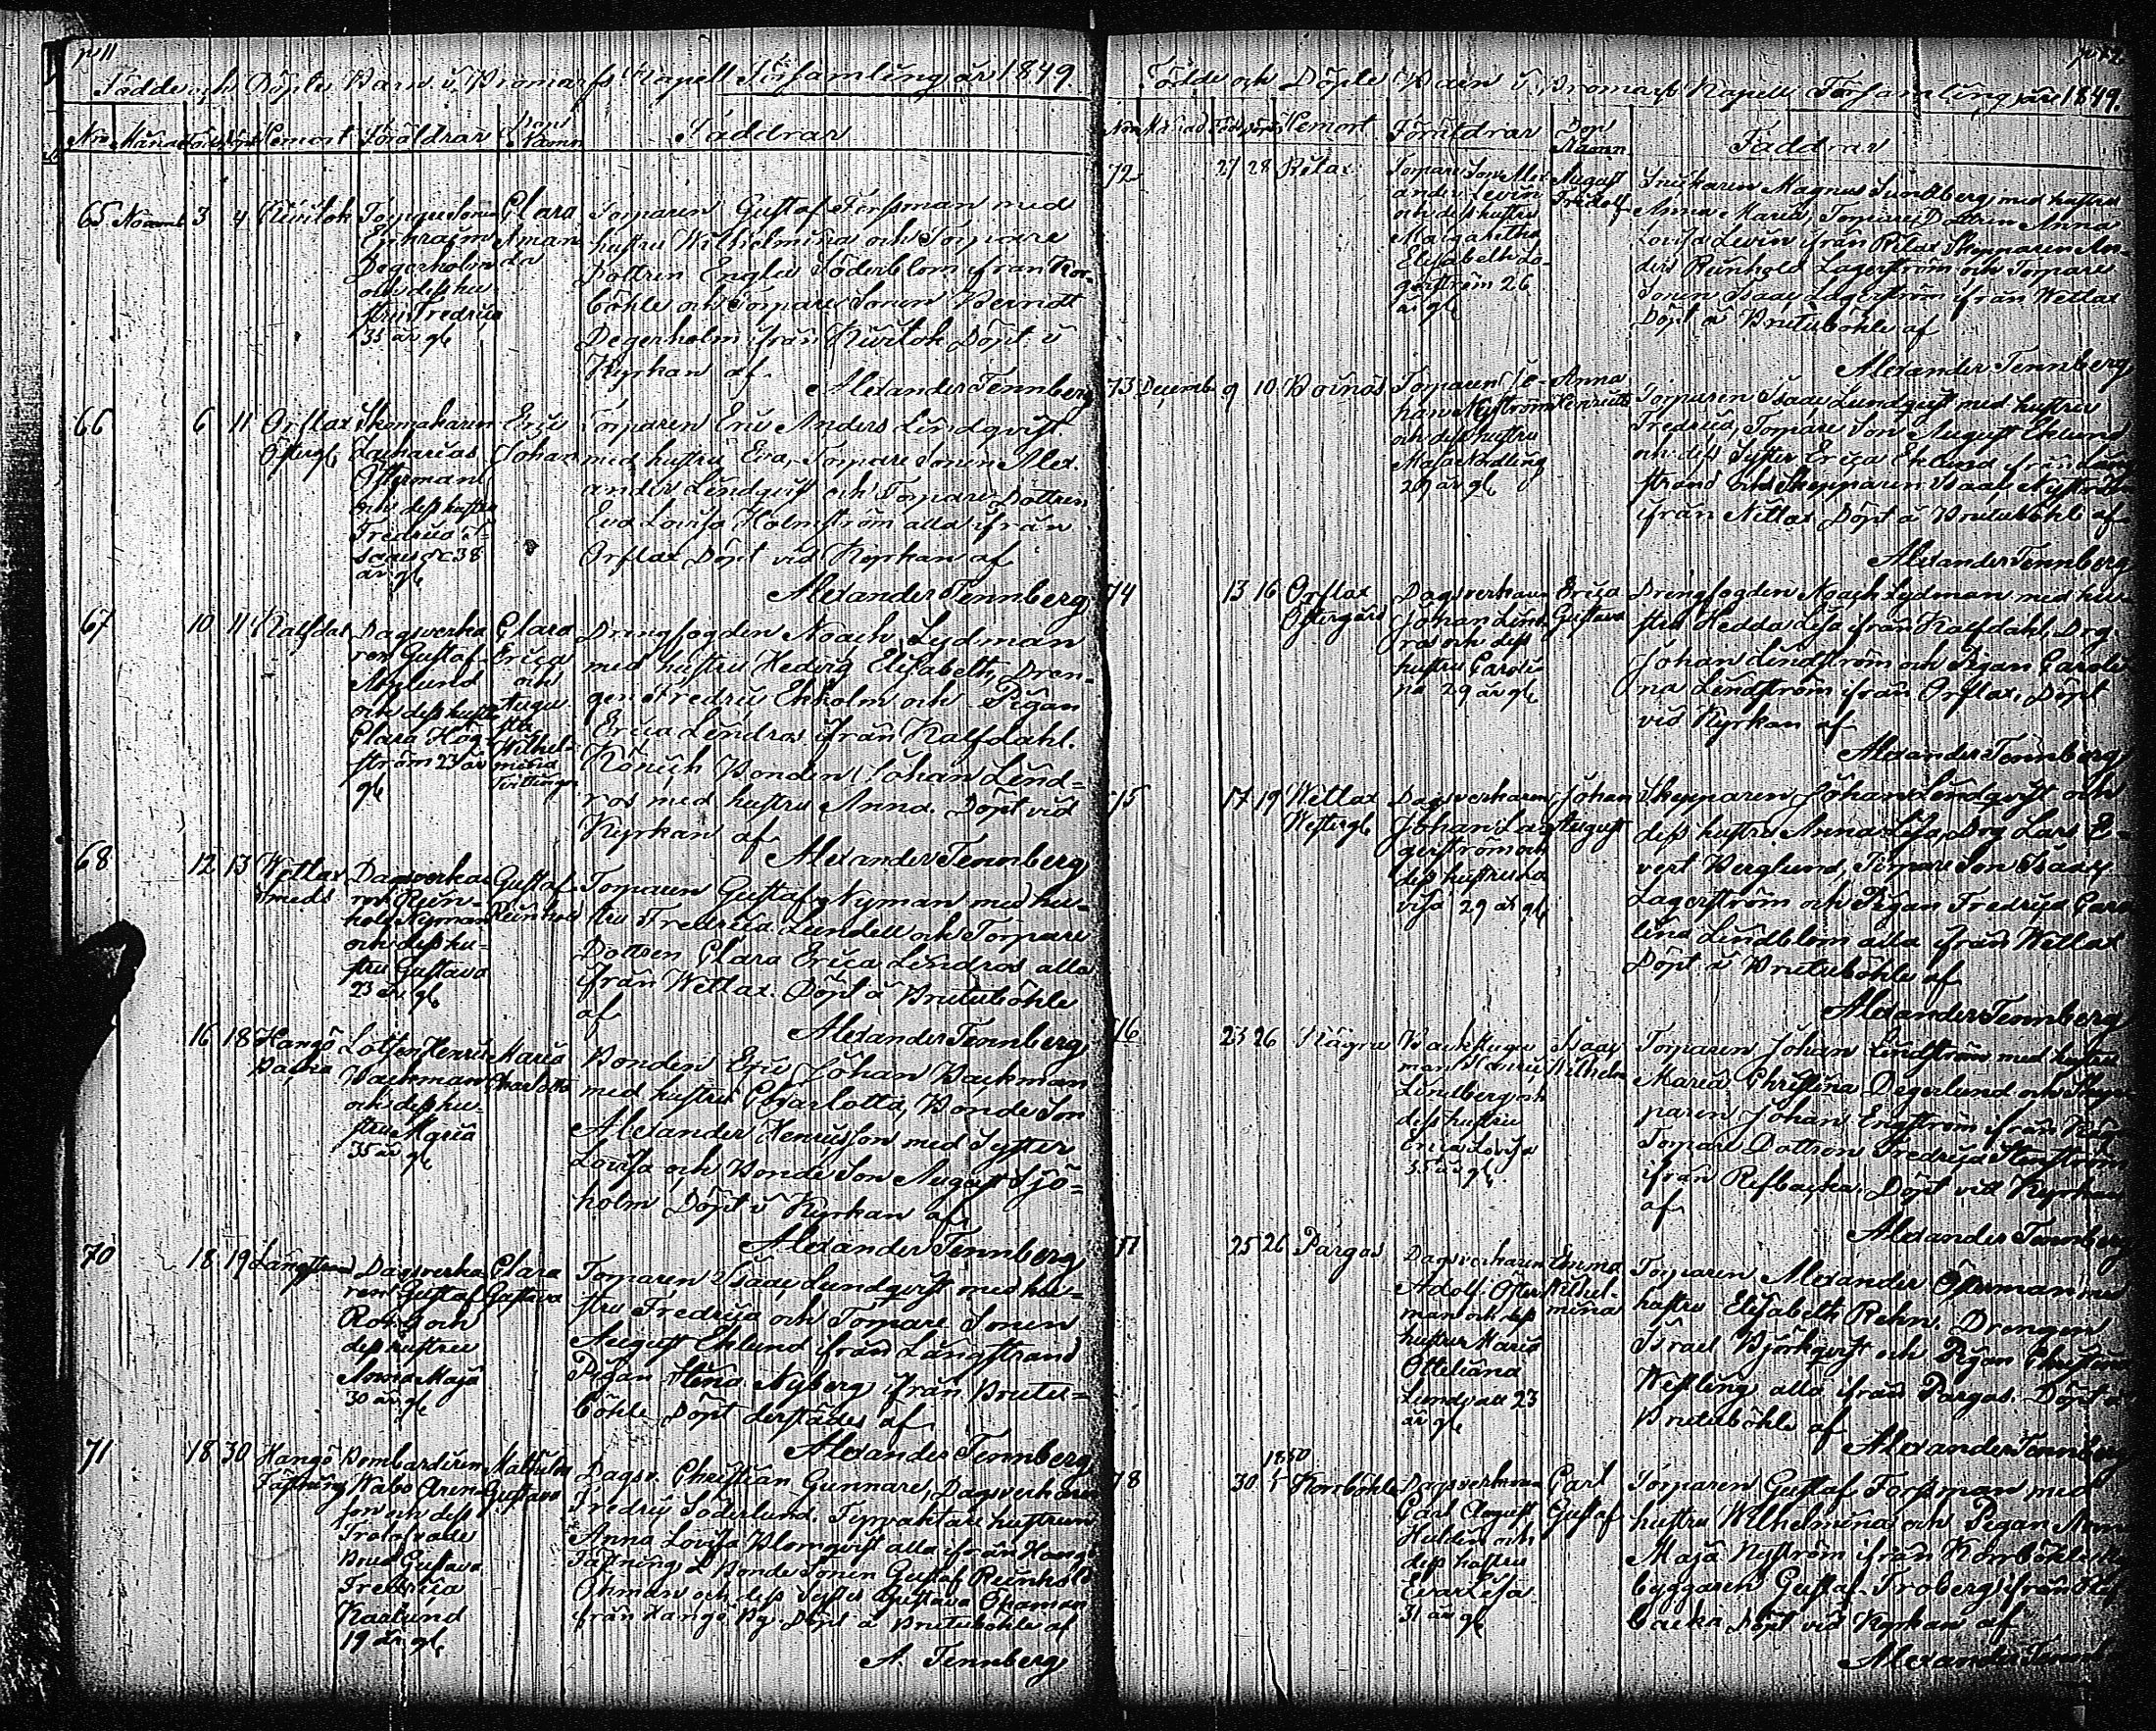 p 11
Födde och Döpte Barn i Bromarfs Kapell Församling år 1849.
N:ro Månad Född Döpt Hemort Föräldrar Dops Namn Faddrar
65 Novemb 3 4
Torpare Sonen
Ephraim
Degerholm
och dess hu-
stru Fredrica
35 år gl
Clara
Aman
da
Torparen Gustaf Forssman med
hustru Wilhelmina och Torpare
Dottren Engla Söderblom ifrån Kor-
böhle och Torpare Sonen Berndt
Degerholm ifrån Döpt i
Kyrkan af
Alexander Tennberg
66 6 11 Orslax
Östergl
Skomakaren
Zacharias
Österman
och dess hustru
Fredrica I-
38
år gl
Eric
Johan
Torparen Eric Anders Lindqvist
med hustru Eva, Torpare Sonen Alex-
ander Lindqvist och Torpare Dottren
Eva Lovisa Holmström alla ifrån
Orslax Döpt vid Kyrkan af
Alexander Tennberg
67 10 11 Kalfdal
Dagsverka
ren Gustaf
och dess hustru
Clara Hög-
ström 23 år
gl
Clara
Erica
och
Augu
sta
Wilhel-
mina
Tvillingar
Drengfogden Noach Lydman
med hustru Hedvig Elisabeth, Dren-
gen Fredric Ekholm och Pigan
Erica Lindros ifrån Kalfdahl.
Bonden Johan Lind-
ros med hustru Anna. Döpt vid
Kyrkan af
Alexander Tennberg
68 12 13 Wettlax
Smeds
Dagsverka-
ren Rein-
hold Nyman
och dess hu-
stru Gustava
23 år gl
Gustaf
Reinhold
Torparen Gustaf Nyman med hu-
stru Fredrica Lundell och Torpare
Dottren Clara Erica Lindros alla
ifrån Wettlax. Döpt å Brutuböhle
af
Alexander Tennberg
16 18 Hangö
Backa
Lotsen Henric
Backman
och dess hu-
stru Maria
35 år gl
Maria
Charlotta
Bonden Eric Johan Backman
med hustru Charlotta, Bonde Son
Alexander Henricsson med Syster
Lovisa och Bonde Son August Sjö-
holm Döpt i Kyrkan af
Alexander Tennberg
70 18 19 Långstrand
Dagsverka
ren Gustaf
och
dess hustru
Anna Maja
30 år gl
Clara
Gustava
Torparen Isaac Lundqvist med hu-
stru Fredrica och Torpare Sonen
August Eklund ifrån Långstrand
Pigan Stina Nyberg ifrån Brutu-
böhle Döpt derstädes af
Alexander Tennberg
71 18 30 Hangö
Fästning
Bombardieren
son och dess
Trolofvade
Brud Gustava
Fredrica
Karlund
19 år gl
Mathilda
Gustava
Dagsv. Christian Gunnare, Dagsverkaren
Fredric Söderlund. hustrun
Anna Lovisa Blomqvist alla ifrån Hangö
Fästning & Bonde Sonen Gustaf Reinhold
Öhman och dess Syster Gustava Öhman
ifrån Hangö By. Döpt å Brutuböhle af
A. Tennberg
p 12
Födde och Döpte Barn i Bromarfs Kapell Församling år 1849.
N:ro Månad Född Döpt Hemort Föräldrar Dop Namn Faddrar
72 27 28 Rilax
Torpare Son Alex-
ander Levin
och dess hustru
Margaretha
Elisabeth La-
gerström 26
år gl
August
Fridolf
Snickaren Magnus Sundberg med hustru
Anna Maria, Torpare Dottren Anna
Lovisa Levin ifrån Rilax Skepparen An-
ders Reinhold Lagerström och Torpare
Sonen Isaac Lagerström ifrån Wettlax
Döpt å Brutuböhle af
Alexander Tennberg
73 Decemb 9 10
Torparen Jo-
han Nyström
och dess hustru
Maja Nordling
29 år gl
Anna
Henrietta
Torparen Isaac Lundqvist med hustru
Fredrica, Torpare Son August Eklund
och dess Syster Erica Eklund ifrån Lång-
strand och Skepparen Isaac Nyström
ifrån Nittlax Döpt å Brutuböhle af
Alexander Tennberg
74 13 16 Orslax
Östergård
Dagsverkaren
Johan Lind-
ros och dess
hustru Caroli-
na 29 år gl
Erica
Gustava
Drengfogden Noach Lydman med hu-
stru Hedda Lisa ifrån Kalfdahl, Drg.
Johan Lindström och Pigan Caroli-
na Lindström ifrån Orslax. Döpt
vid Kyrkan af
Alexander Tennberg
75 17 19 Wettlax
Westergl
Dagsverkaren
Johan Lag-
erström och
dess hustru Lo
visa 29 år gl
Johan
August
Skepparen Johan Lindqvist och
dess hustru Anna Lisa, Drg Lars E-
vert Berglund, Torpare Son Isaac
Lagerström och Pigan Fredrica Caro
lina Lindblom alla ifrån Wettlax
Döpt å Brutuböhle af
Alexander Tennberg
76 23 26
man Henric
Lindberg och
dess hustru
Erica Lovisa
35 år gl
Isaac
Wilhelm
Torparen Johan Lindström med hustru
Maria Christina Degerlund och Skep-
paren Johan Engström ifrån
Torpare Dottren Fredrica
ifrån Refbacka. Döpt vid Kyrkan
af
Alexander Tennberg
77 25 26 Pargas
Dagsverkaren
Adolf Öster-
man och dess
hustru Maria
Ottiliana
Lundvall 23
år gl
Emma
Wilhel-
mina
Torparen Alexander Österman med
hustru Elisabeth Rehn. Drengen
Israel Björkqvist och Pigan Christina
Westling alla ifrån Pargas. Döpt å
Brutuböhle af
Alexander Tennberg
78 30 1850 1 Korrböhle
Dagsverkaren
Carl August
Hildén och
dess hustru
Eva Lisa
31 år gl
Carl
Gustaf
Torparen Gustaf Forssman med
hustru Wilhelmina och Pigan Anna
Maja Nyström ifrån Korrböhle
byggaren Gustaf Froberg ifrån
backa Döpt vid Kyrkan af
Alexander Tennb